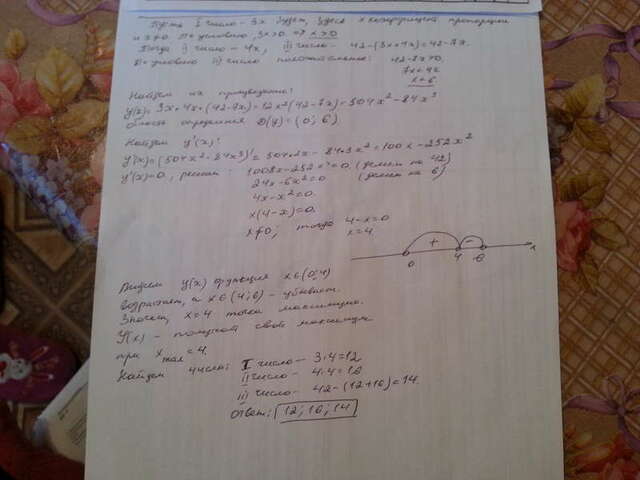 Пусть I число - 3x будет, здесь x коэффициент пропорции
и x≠0. По условию, 3x>0 => x>0
Тогда II число - 4x, III число - 42-(3x+4x)=42-7x.
По условию III число положительное: 42-7x>0,
7x<42
x<6
Найдем их произведение:
y(x)=3x·4x·(42-7x)=12x²(42-7x)=504x²-84x³
Область определения D(y)=(0;6)
Найдем y'(x):
y'(x)=(504x²-84x³)'=504·2x-84·3x²=1008x-252x²
y'(x)=0, решим. 1008x-252x²=0 (делим на 42)
24x-6x²=0 (делим на 6)
4x-x²=0.
x(4-x)=0.
x≠0; тогда 4-x=0
x=4.
+ -
0 4 6 x
Пишем y(x) функция x∈(0;4)
возрастает, а x∈(4;6) - убывает.
Значит, x=4 точка максимума.
y(x) - получает свой максимум
при x max=4.
Найдем числа: I число - 3·4=12
II число - 4·4=16
III число - 42-(12+16)=14.
Ответ: 12; 16; 14